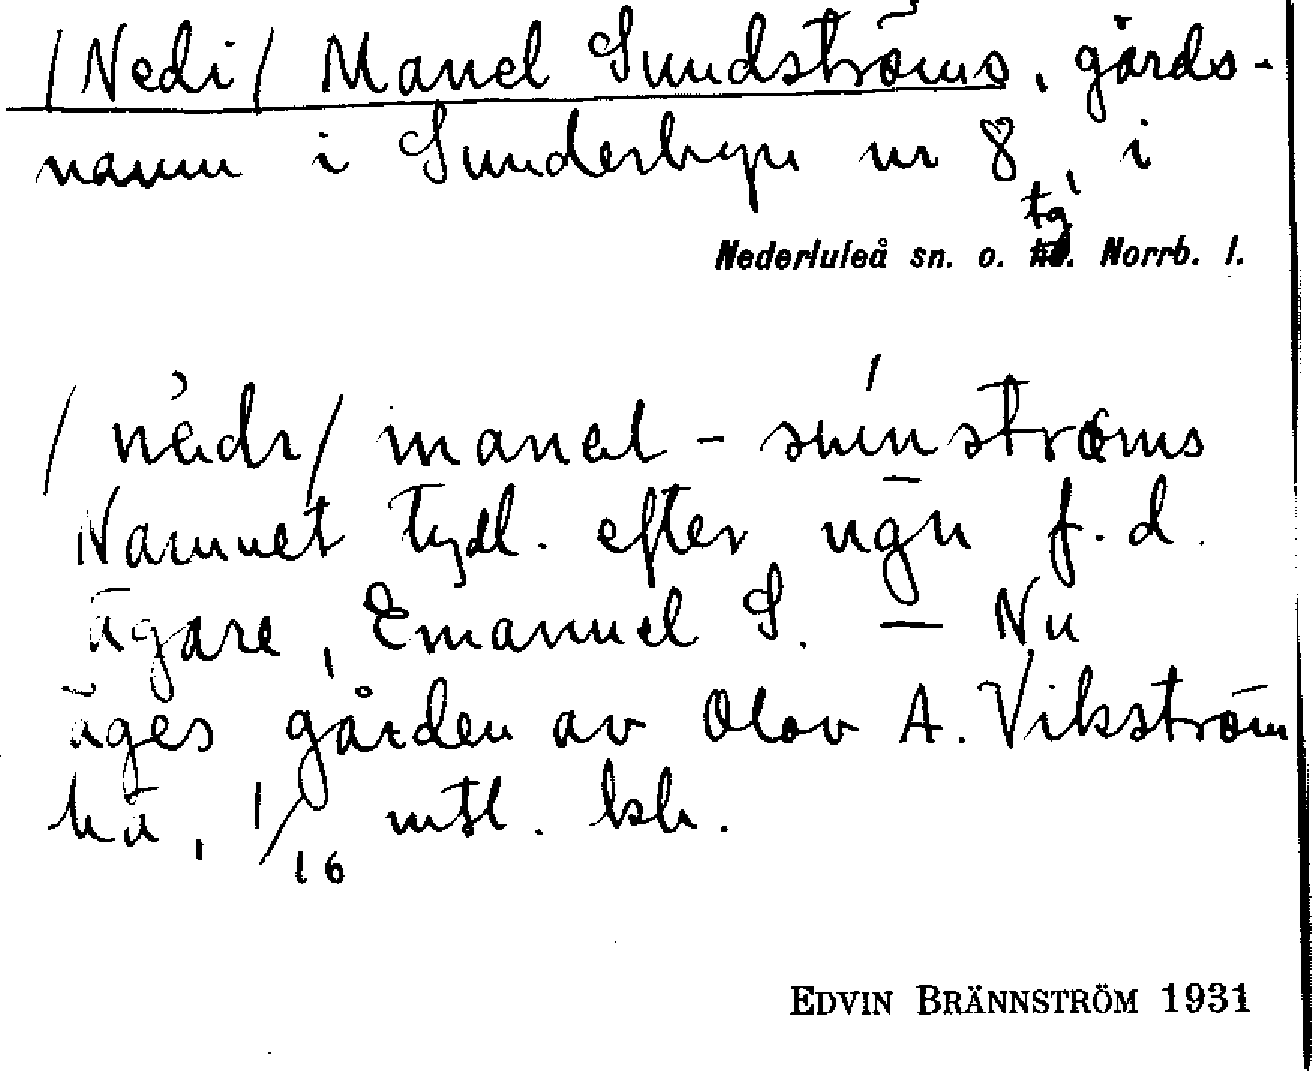 /Nedi/ Manel Sundströms, gårds-
namn i Sunderbyn nr 8, i
tg
Nederluleå sn. o. Norrb. l.
/nedı/ manel - sunströms
Namnet tydl. efter ngn f.d.
ägare, Emanuel S. — Nu
äges gården av Olov A. Vikström
hä, 1/16 mtl. kh.
EDVIN BRÄNNSTRÖM 1931